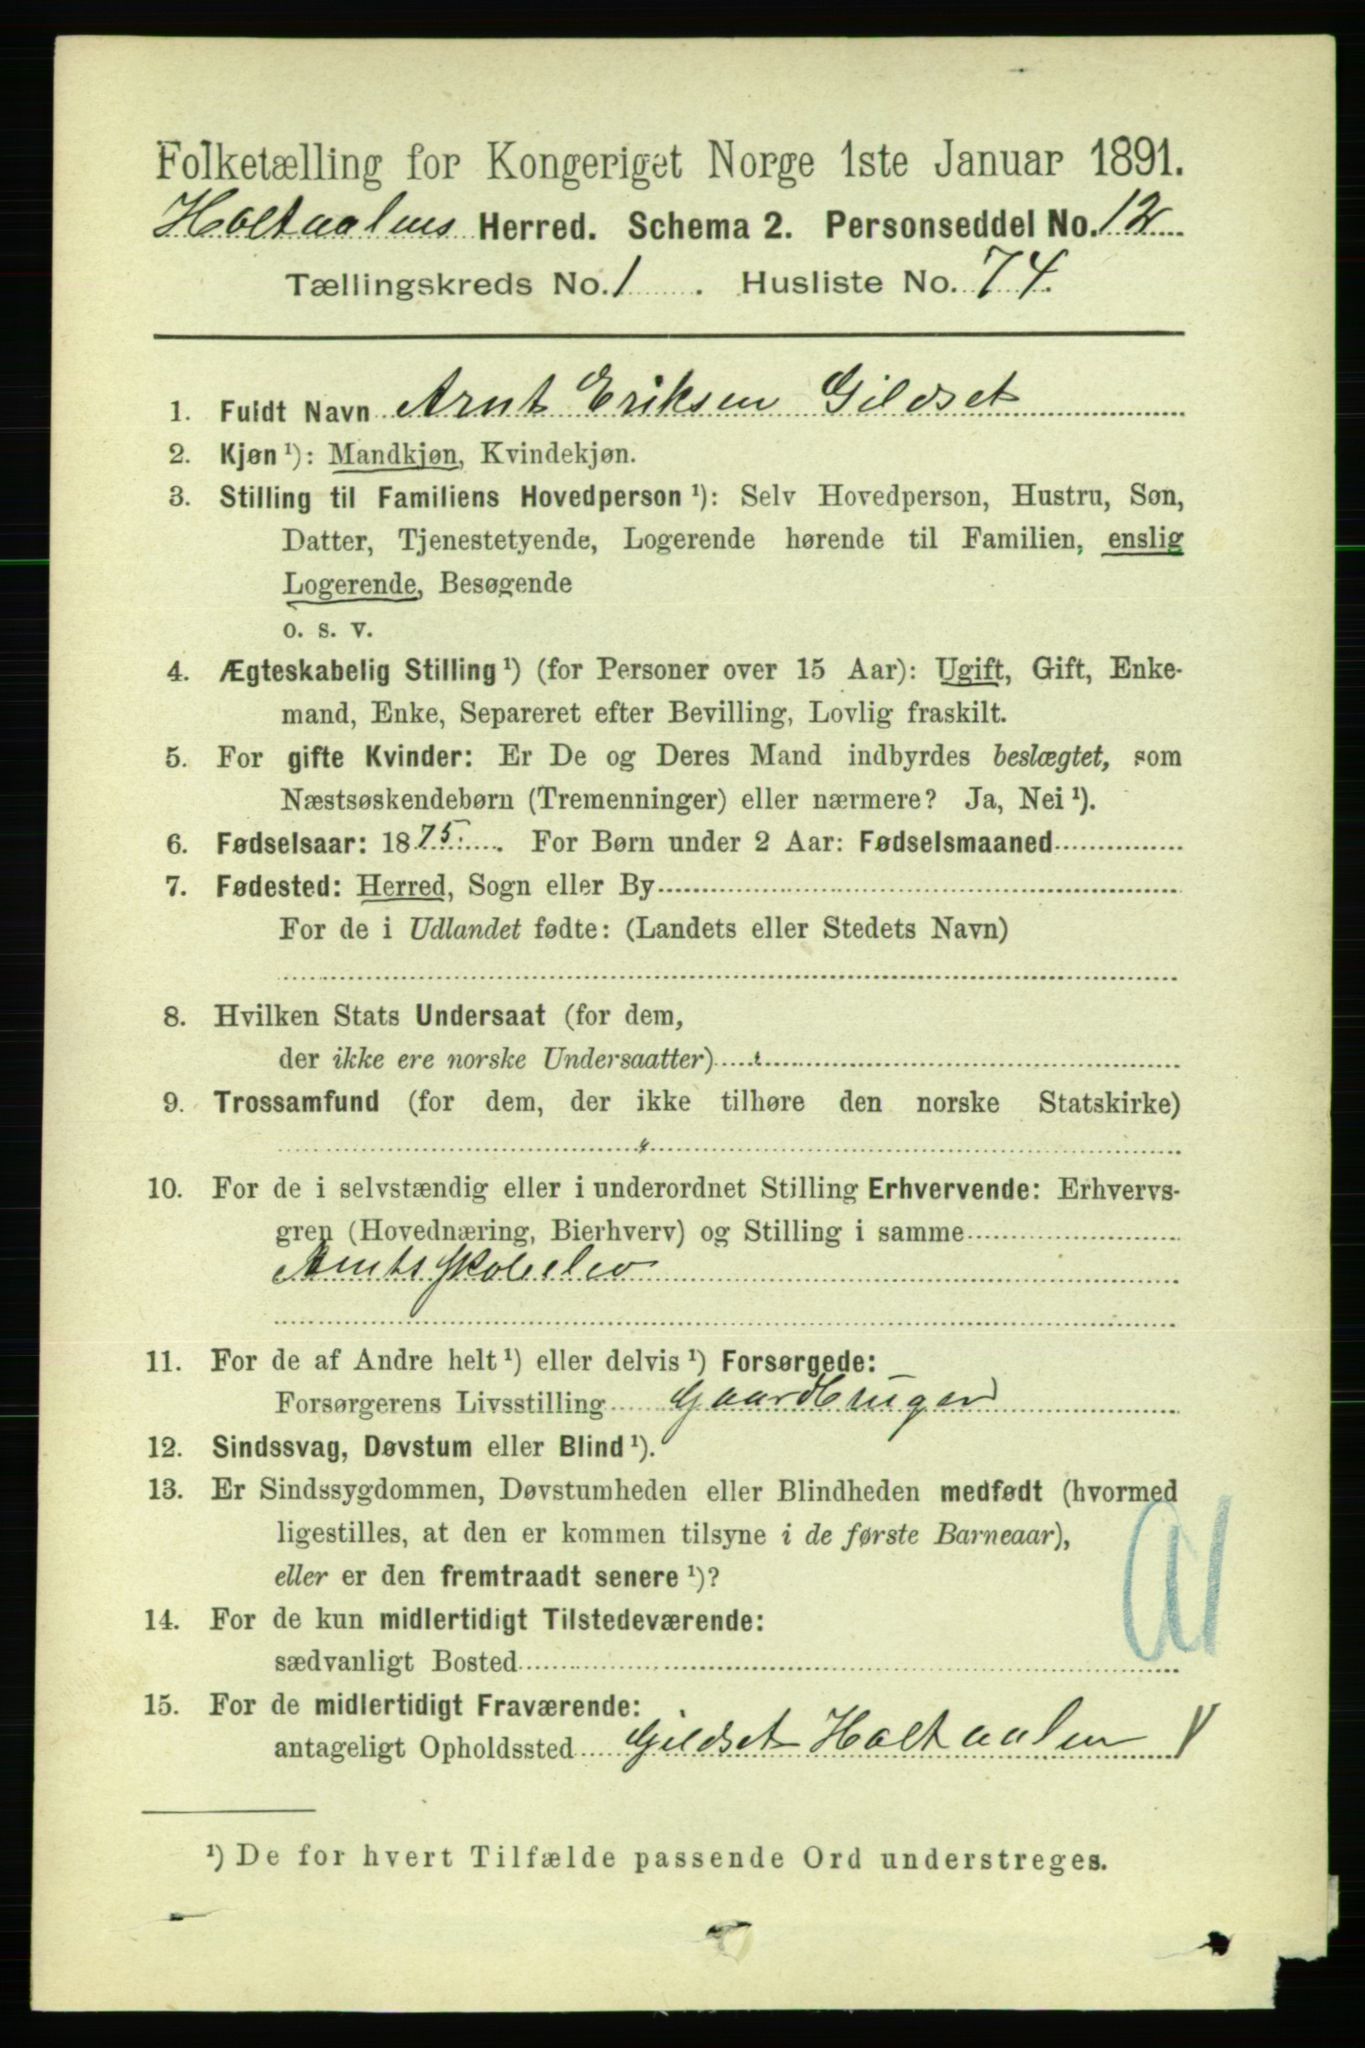 Folketælling for Kongeriget Norge 1ste Januar 1891.
Holtaalens Herred. Schema 2. Personseddel No. 12
Tællingskreds No. 1. Husliste No. 74.
1. Fuldt Navn Arnt Eriksen Gildset
2. Kjøn ¹): Mandkjøn, Kvindekjøn.
3. Stilling til Familiens Hovedperson ¹): Selv Hovedperson, Hustru, Søn,
Datter, Tjenestetyende, Logerende hørende til Familien, enslig
Logerende, Besøgende
o. s. v.
4. Ægteskabelig Stilling ¹) (for Personer over 15 Aar): Ugift, Gift, Enke-
mand, Enke, Separeret efter Bevilling, Lovlig fraskilt.
5. For gifte Kvinder: Er De og Deres Mand indbyrdes beslægtet, som
Næstsøskendebørn (Tremenninger) eller nærmere? Ja, Nei ¹).
6. Fødselsaar: 1875. For Børn under 2 Aar: Fødselsmaaned
7. Fødested: Herred, Sogn eller By
For de i Udlandet fødte: (Landets eller Stedets Navn)
8. Hvilken Stats Undersaat (for dem,
der ikke ere norske Undersaatter)
9. Trossamfund (for dem, der ikke tilhøre den norske Statskirke)
10. For de i selvstændig eller i underordnet Stilling Erhvervende: Erhvervs-
gren (Hovednæring, Bierhverv) og Stilling i samme
Amtsskoleelev
11. For de af Andre helt ¹) eller delvis ¹) Forsørgede:
Forsørgerens Livsstilling Gaardbruger
12. Sindssvag, Døvstum eller Blind ¹).
13. Er Sindssygdommen, Døvstumheden eller Blindheden medfødt (hvormed
ligestilles, at den er kommen tilsyne i de første Barneaar),
eller er den fremtraadt senere ¹)?
14. For de kun midlertidigt Tilstedeværende:
sædvanligt Bosted
15. For de midlertidigt Fraværende:
antageligt Opholdssted Gildset Holtaalen
¹) De for hvert Tilfælde passende Ord understreges.